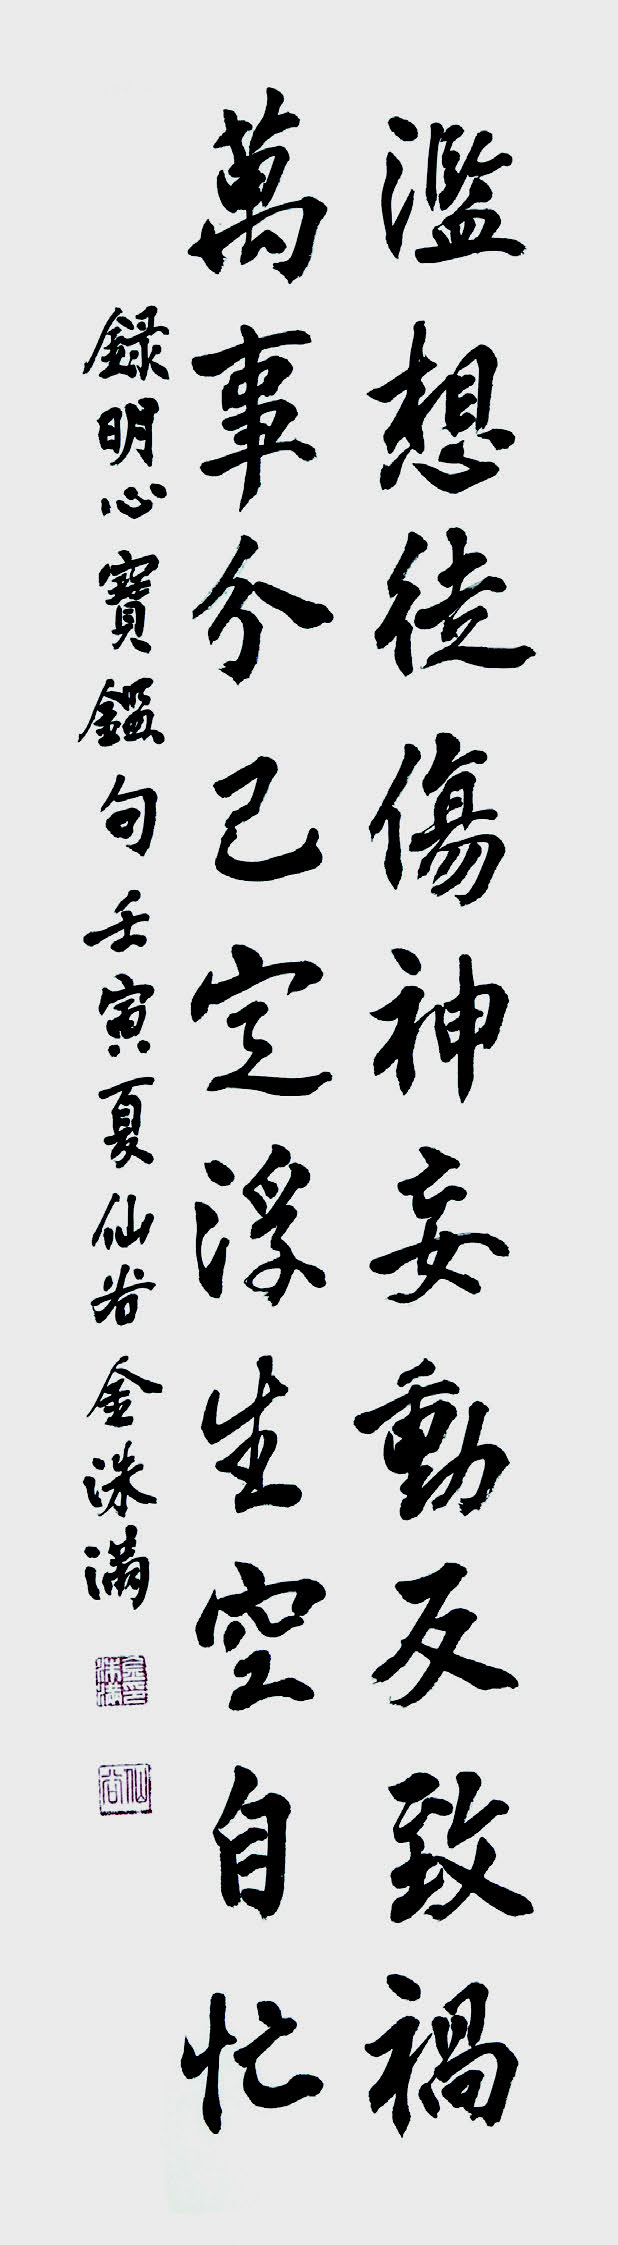 濫想徒傷神妄動反致禍
萬事分已定浮生空自忙
錄明心寶鑑句 壬寅夏 仙谷 金洙滿
金洙滿印
仙谷